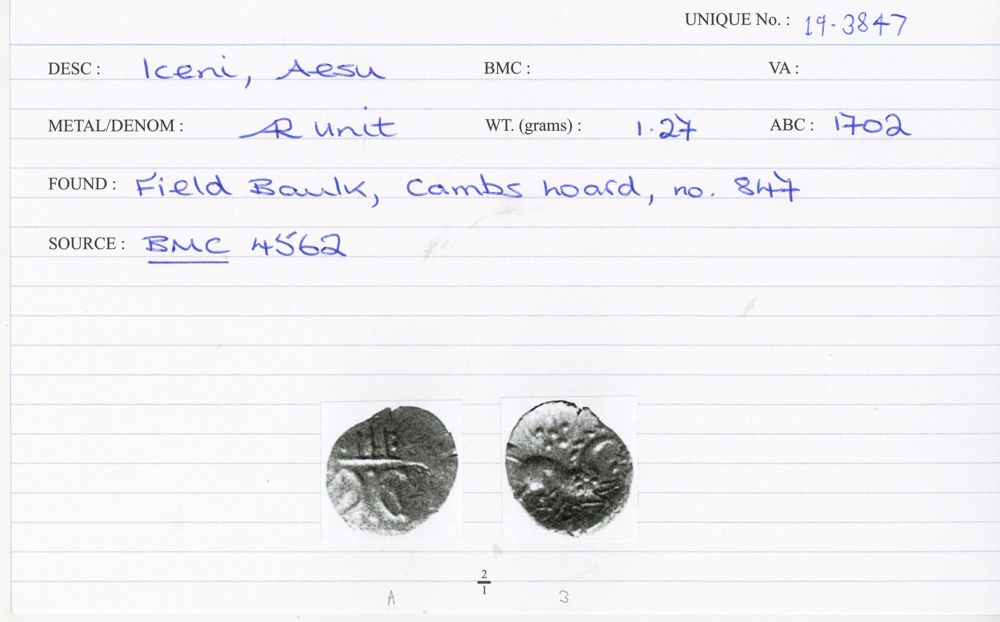 UNIQUE No. : 19-3847
DESC : Iceni, Aesu BMC : VA :
METAL/DENOM : AR unit WT. (grams) : 1.27 ABC : 1702
FOUND : Field Baulk, Cambs hoard, no. 847
SOURCE : BMC 4562
2
1
A 3